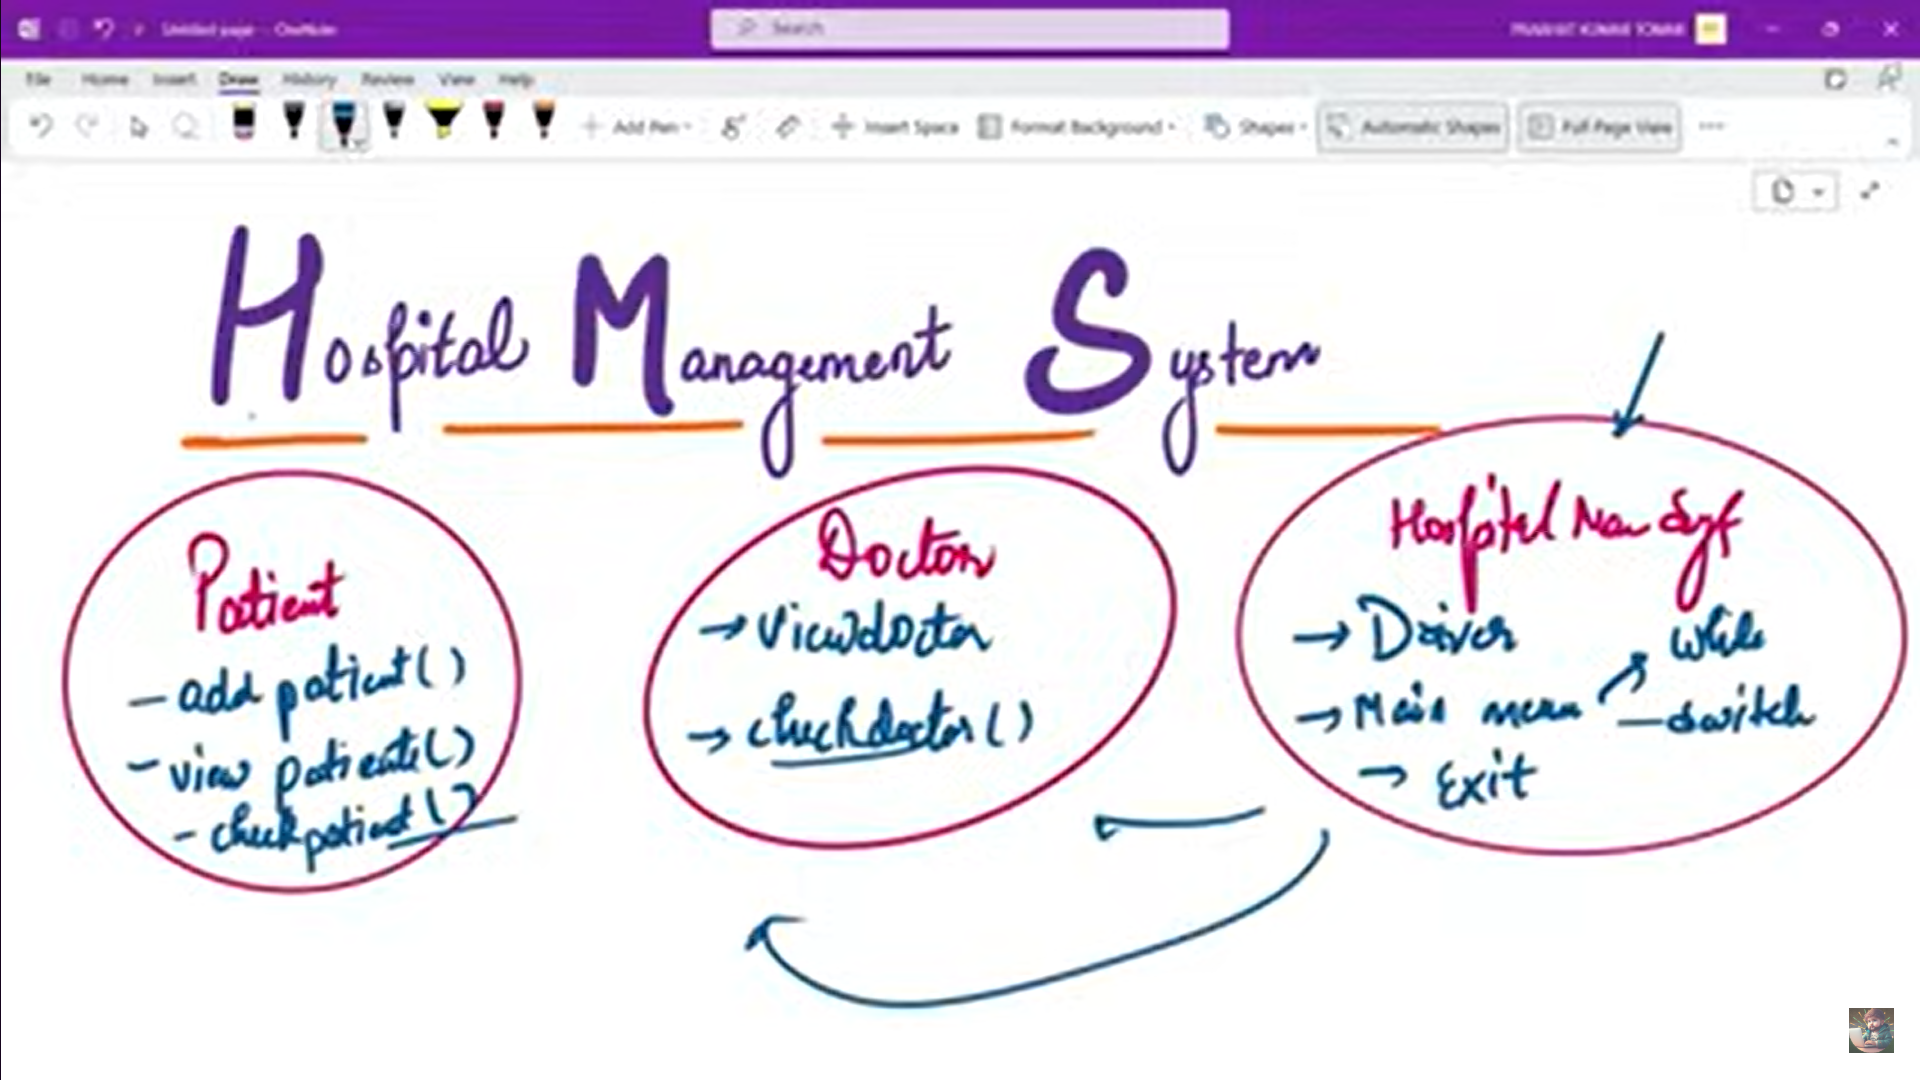 Untitled page - OneNote
Search
File Home Insert Draw History Review View Help
Add Pen
Insert Space
Format Background
Shapes
Automatic Shapes
Full Page View
Hospital Management System
Patient
- add patient()
- view patients()
- checkpatient()
Doctor
→ Viewdoctor
→ checkdoctor()
Hospital Man Syt
→ Driver
while
→ Main menu
- switch
→ Exit